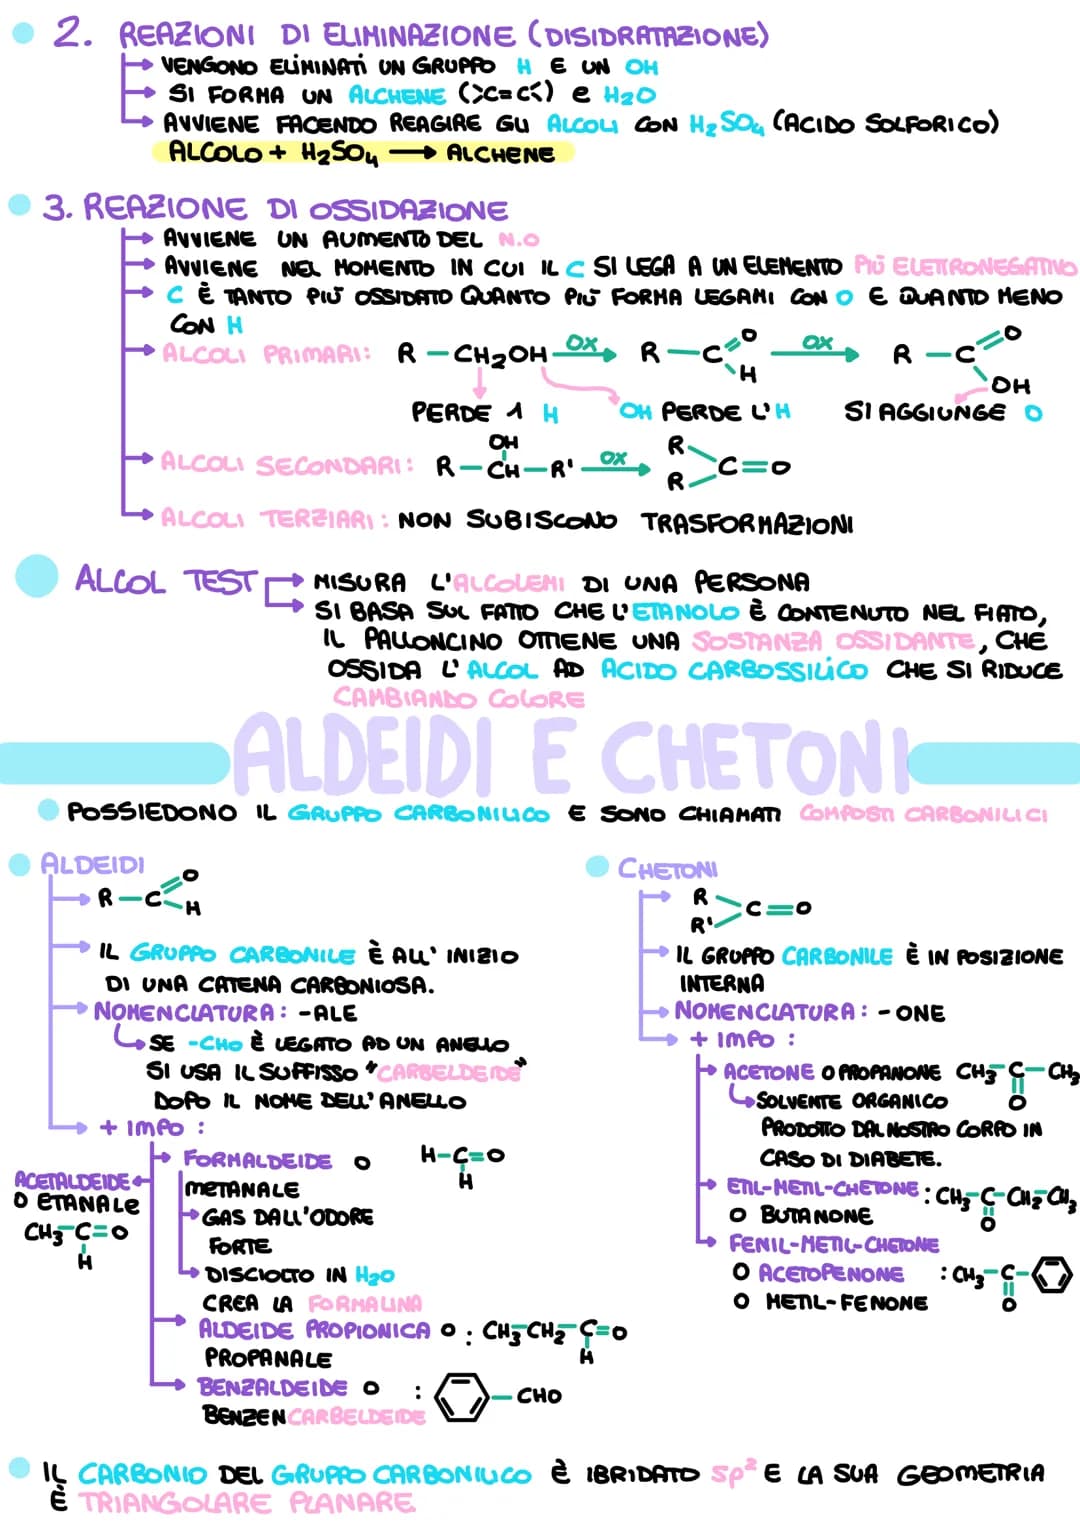 2. REAZIONI DI ELIMINAZIONE (DISIDRATAZIONE)
VENGONO ELIMINATI UN GRUPPO H E UN OH
SI FORMA UN ALCHENE (>C=C<) e H2O
AVVIENE FACENDO REAGIRE GLI ALCOLI CON H2SO4 (ACIDO SOLFORICO)
ALCOLO + H2SO4 → ALCHENE
3. REAZIONE DI OSSIDAZIONE
AVVIENE UN AUMENTO DEL N.O
AVVIENE NEL MOMENTO IN CUI IL C SI LEGA A UN ELEMENTO PIÙ ELETTRONEGATIVO
C È TANTO PIÙ OSSIDATO QUANTO PIÙ FORMA LEGAMI CON O E QUANTO MENO
CON H
ALCOLI PRIMARI: R-CH2OH OX→ R-C=O H OX→ R-C=O OH
PERDE 1 H OH PERDE L'H SI AGGIUNGE O
ALCOLI SECONDARI: R-CH-R' OH OX→ R R C=O
ALCOLI TERZIARI: NON SUBISCONO TRASFORMAZIONI
ALCOL TEST
MISURA L'ALCOLEMI DI UNA PERSONA
SI BASA SUL FATTO CHE L'ETANOLO È CONTENUTO NEL FIATO,
IL PALLONCINO OTTIENE UNA SOSTANZA OSSIDANTE, CHE
OSSIDA L'ALCOL AD ACIDO CARBOSSILICO CHE SI RIDUCE
CAMBIANDO COLORE
ALDEIDI E CHETONI
POSSIEDONO IL GRUPPO CARBONILICO E SONO CHIAMATI COMPOSTI CARBONILICI
ALDEIDI
R-C=O H
IL GRUPPO CARBONILE È ALL' INIZIO
DI UNA CATENA CARBONIOSA.
NOMENCLATURA: -ALE
SE -CHO È LEGATO AD UN ANELLO
SI USA IL SUFFISSO "CARBELDEIDE"
DOPO IL NOME DELL' ANELLO
+ IMPO :
FORMALDEIDE O H-C=O H
METANALE
GAS DALL'ODORE
FORTE
DISCIOLTO IN H2O
CREA LA FORMALINA
ACETALDEIDE
O ETANALE
CH3-C=O
H
ALDEIDE PROPIONICA O : CH3-CH2-C=O
H
PROPANALE
BENZALDEIDE O : -CHO
BENZENCARBELDEIDE
CHETONI
R R' C=O
IL GRUPPO CARBONILE È IN POSIZIONE
INTERNA
NOMENCLATURA: -ONE
+ IMPO :
ACETONE O PROPANONE CH3-C-CH3
O
SOLVENTE ORGANICO
PRODOTTO DAL NOSTRO CORPO IN
CASO DI DIABETE.
ETIL-METIL-CHETONE : CH3-C-CH2-CH3
O
O BUTANONE
FENIL-METIL-CHETONE
O ACETOPENONE : CH3-C-
O
O METIL-FENONE
IL CARBONIO DEL GRUPPO CARBONILICO È IBRIDATO sp² E LA SUA GEOMETRIA
È TRIANGOLARE PLANARE